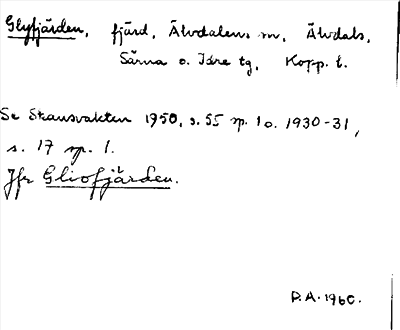 Glyfjärden, fjärd, Älvdalens sn, Älvdals,
Särna o. Idre tg, Kopp. l.
Se Skansvakten 1950, s. 55 sp. 1 o. 1930-31,
s. 17 sp. 1.
Jfr Gliofjärden.
D.A. 1960.